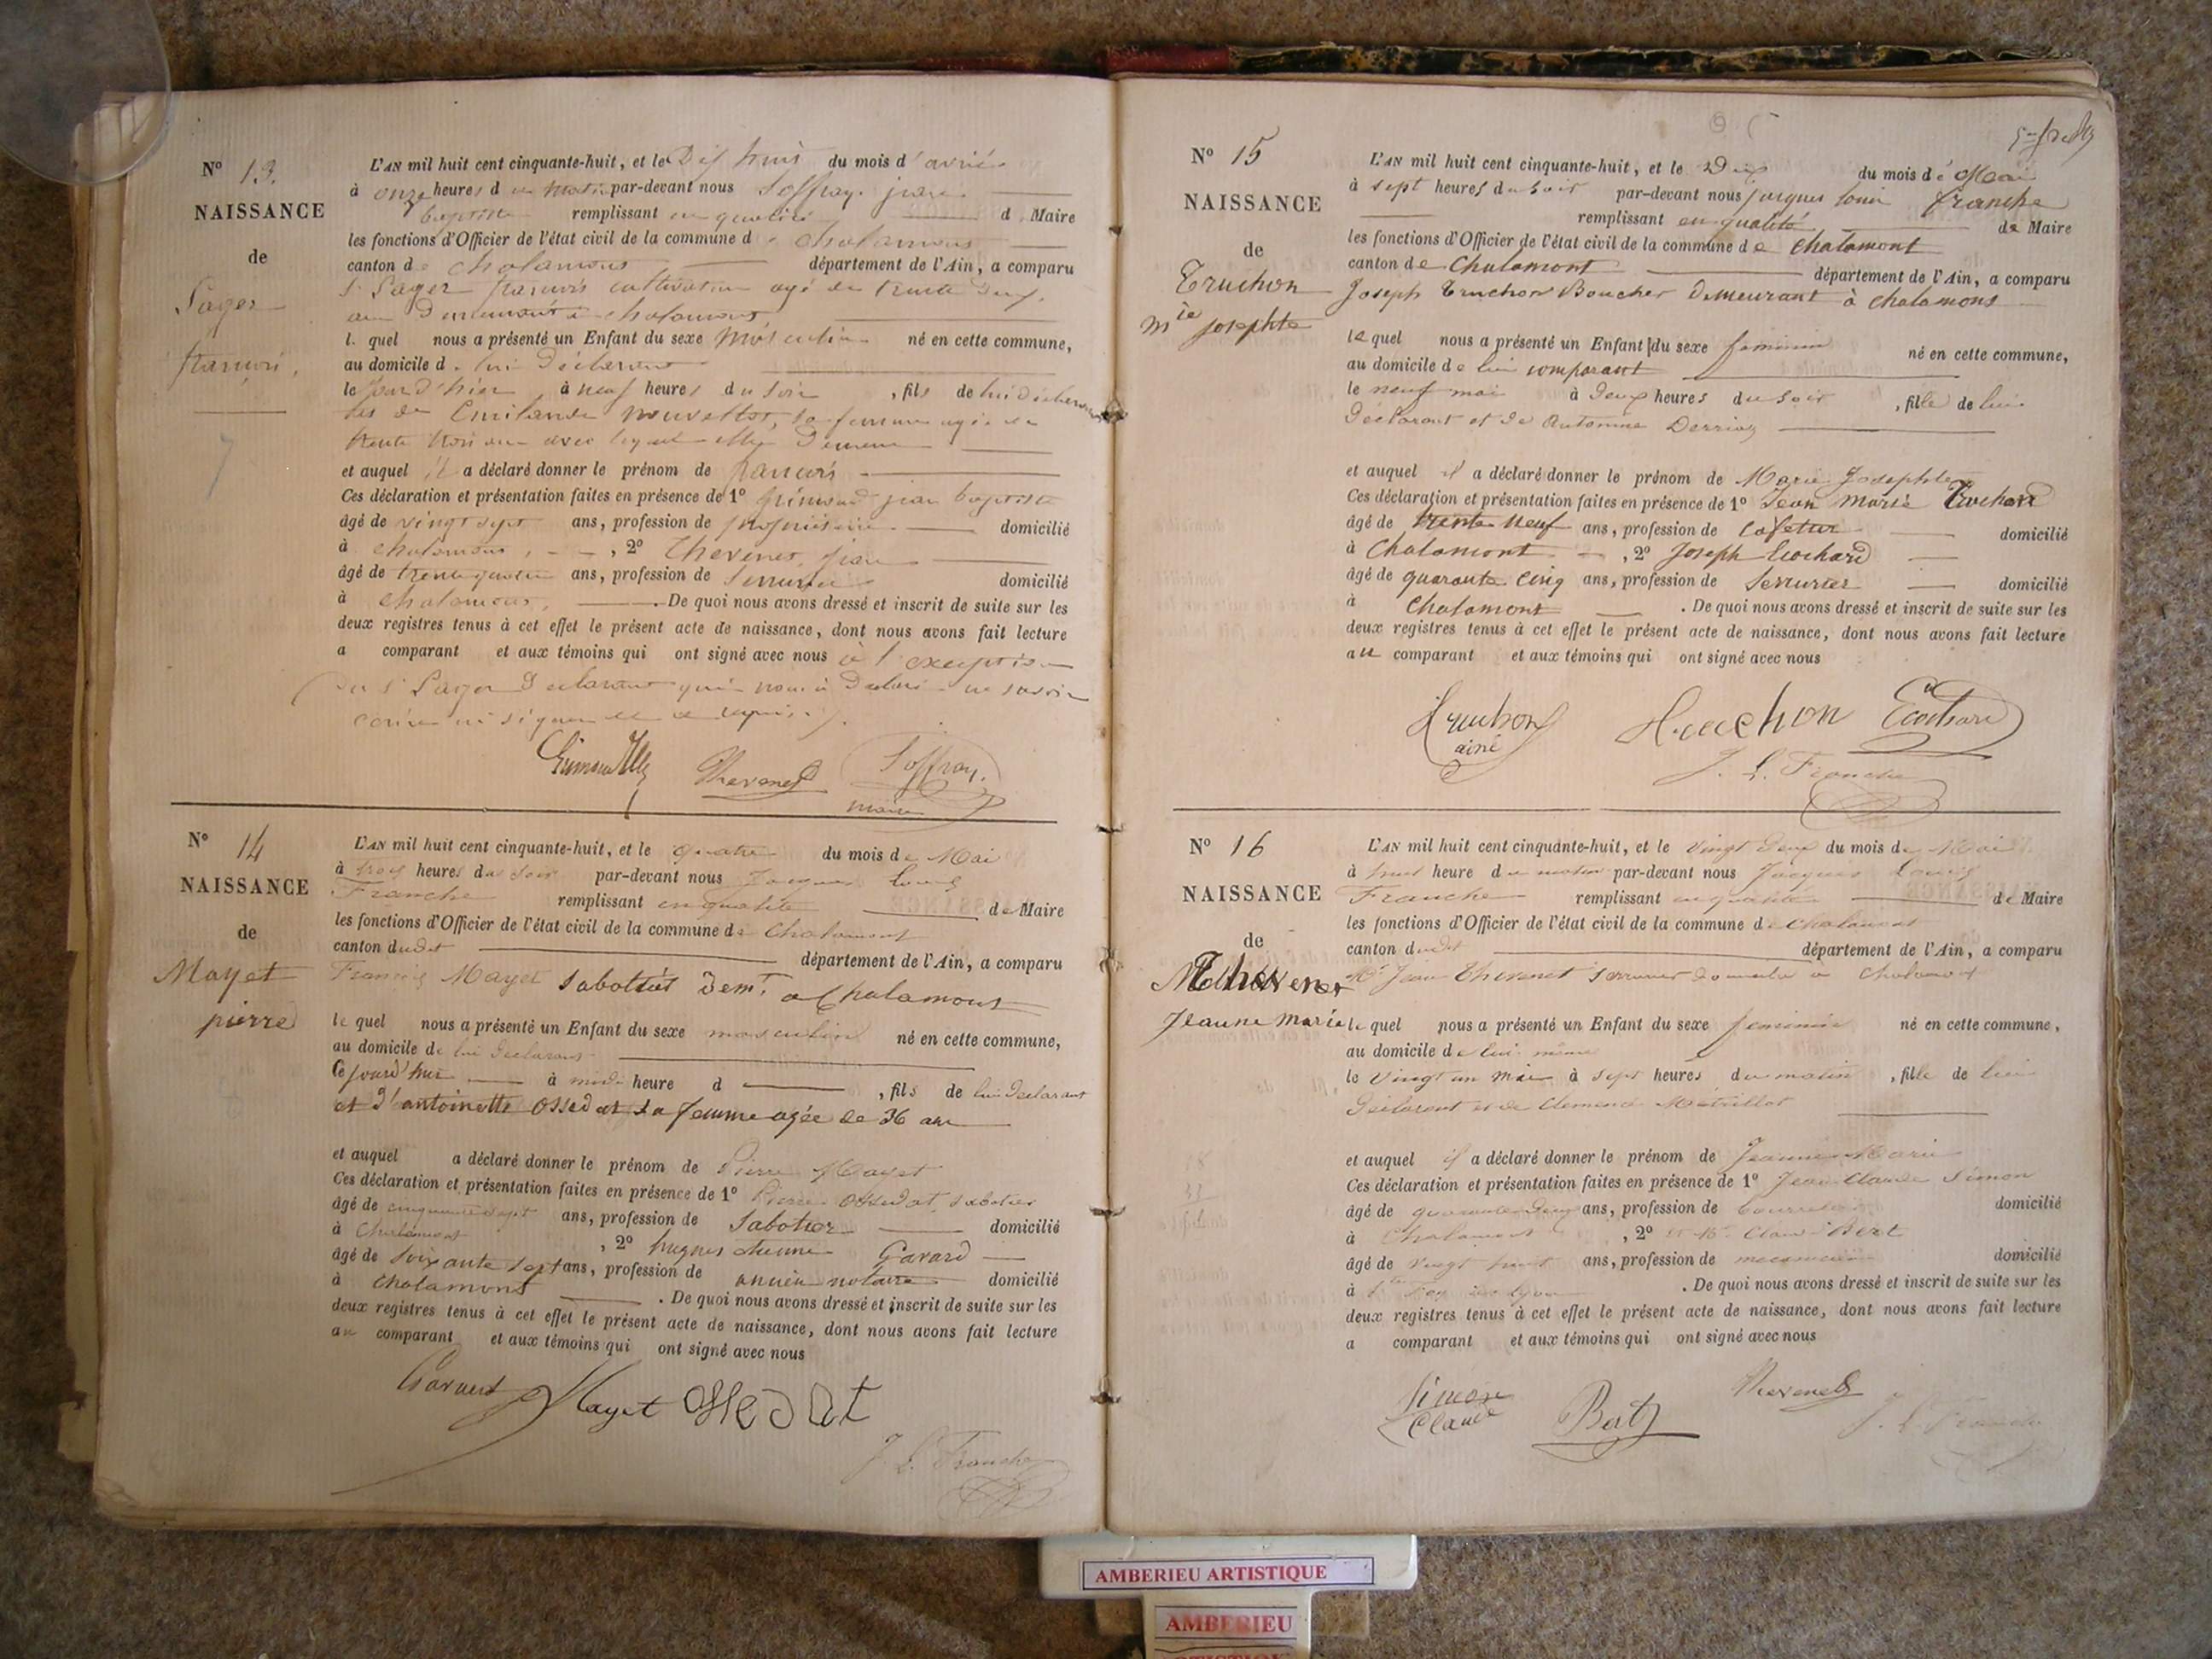 N° 13.
NAISSANCE
de
françois
L'AN mil huit cent cinquante-huit, et le Dix huit du mois d'avril
à onze heures du matin par-devant nous Soffray jean
baptiste remplissant en qualité d Maire
les fonctions d'Officier de l'état civil de la commune de chalamont
canton de chalamont département de l'Ain, a comparu
françois cultivateur agé de trente Deux
ans Demeurant à chalamont
l quel nous a présenté un Enfant du sexe Masculin né en cette commune,
au domicile de lui Déclarant
le jourd'hier à neuf heures du soir, fils de lui déclarant
sa femme agée de
trente trois ans avec lequel elle Demeure
et auquel il a déclaré donner le prénom de francois
Ces déclaration et présentation faites en présence de 1° jean baptiste
âgé de vingt sept ans, profession de propriétaire domicilié
à chalamont, 2° Thevenet, jean
âgé de trente quatre ans, profession de Serrurier domicilié
à chalamont, De quoi nous avons dressé et inscrit de suite sur les
deux registres tenus à cet effet le présent acte de naissance, dont nous avons fait lecture
a comparant et aux témoins qui ont signé avec nous à l'exception
Declarant qui nous a Declaré ne savoir
écrire ni signer
Thevenet Soffray
maire
N° 14
NAISSANCE
de
Mayet
pierre
L'AN mil huit cent cinquante-huit, et le quatre du mois de Mai
à trois heures du soir par-devant nous Jacques Louis
Franche remplissant en qualité de Maire
les fonctions d'Officier de l'état civil de la commune de Chalamont
canton dudit département de l'Ain, a comparu
François Mayet Sabottier Demt a Chalamont
le quel nous a présenté un Enfant du sexe masculin né en cette commune,
au domicile de lui declarant
Ce jourd'hui à midi heure d , fils de lui declarant
et d'antoinette Ossedat sa femme agée de 36 ans
et auquel a déclaré donner le prénom de Pierre Mayet
Ces déclaration et présentation faites en présence de 1° Pierre Ossedat, sabotier
âgé de cinquante sept ans, profession de Sabotier domicilié
à Chalamont, 2° hugues étienne Gavard
âgé de soixante sept ans, profession de ancien notaire domicilié
à chalamont. De quoi nous avons dressé et inscrit de suite sur les
deux registres tenus à cet effet le présent acte de naissance, dont nous avons fait lecture
au comparant et aux témoins qui ont signé avec nous
Mayet Ossedat
J. L. Franche
N° 15
NAISSANCE
de
Truchon
Mie josephte
L'AN mil huit cent cinquante-huit, et le Dix du mois de Mai
à sept heures du soir par-devant nous jacques louis franche
remplissant en qualité de Maire
les fonctions d'Officier de l'état civil de la commune de chalamont
canton de Chalamont département de l'Ain, a comparu
Joseph Truchon Boucher Demeurant à chalamont
le quel nous a présenté un Enfant du sexe feminin né en cette commune,
au domicile de lui comparant
le neuf mai à Deux heures du soir, fille de lui
Déclarant et de Antonine Derrias
et auquel il a déclaré donner le prénom de Marie Josephte
Ces déclaration et présentation faites en présence de 1° Jean Marie Truchon
âgé de trente neuf ans, profession de Cafetier domicilié
à Chalamont, 2° Joseph Ecochard
âgé de quarante cinq ans, profession de Serrurier domicilié
à Chalamont. De quoi nous avons dressé et inscrit de suite sur les
deux registres tenus à cet effet le présent acte de naissance, dont nous avons fait lecture
au comparant et aux témoins qui ont signé avec nous
Truchon
ainé
Truchon Ecochard
J. L. Franche
N° 16
NAISSANCE
de
Thevenet
Jeanne Marie
L'AN mil huit cent cinquante-huit, et le vingt Deux du mois de Mai
à huit heure du matin par-devant nous Jacques Louis
Franche remplissant en qualité de Maire
les fonctions d'Officier de l'état civil de la commune de chalamont
canton dudit département de l'Ain, a comparu
Mr Jean Thevenet serrurier domicilié a chalamont
le quel nous a présenté un Enfant du sexe feminin né en cette commune,
au domicile de lui même
le vingt un mai à sept heures du matin, fille de lui
Déclarant et de Clemence
et auquel il a déclaré donner le prénom de Jeanne Marie
Ces déclaration et présentation faites en présence de 1° Jean Claude Simon
âgé de quarante Deux ans, profession de bourrelier domicilié
à Chalamont, 2° Bert
âgé de vingt huit ans, profession de mecanicien domicilié
à . De quoi nous avons dressé et inscrit de suite sur les
deux registres tenus à cet effet le présent acte de naissance, dont nous avons fait lecture
a comparant et aux témoins qui ont signé avec nous
Simon
Claude
Bert
Thevenet
J. L. Franche
AMBERIEU ARTISTIQUE
AMBERIEU